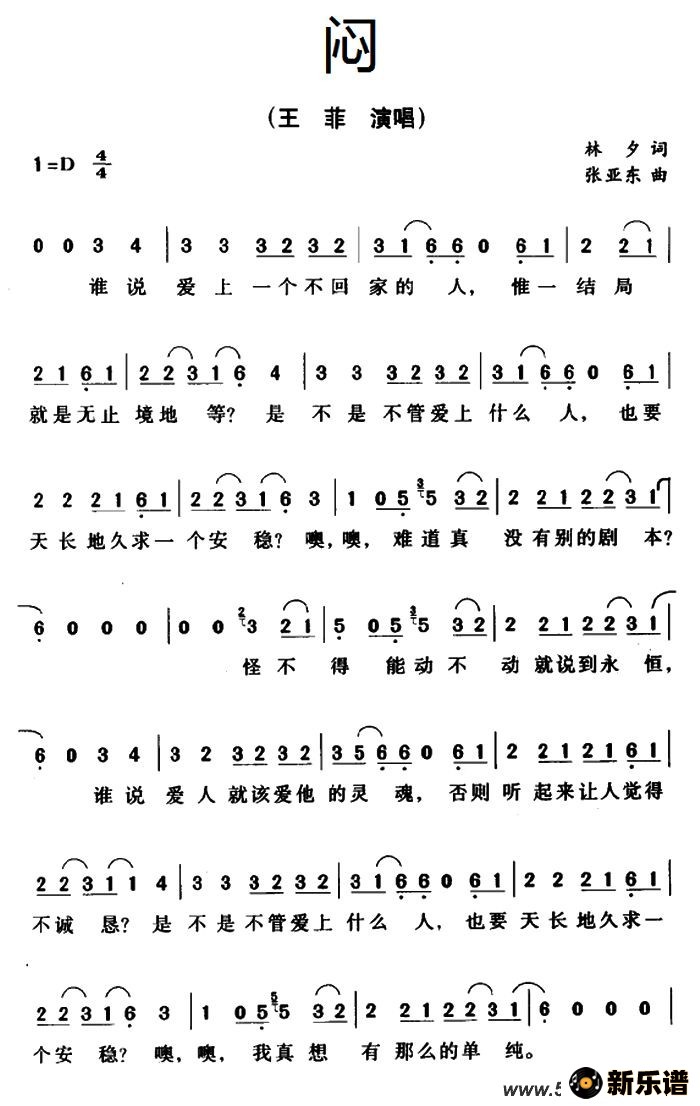 闷
（王 菲 演唱）
1=D 4/4
林 夕 词
张亚东 曲
0 0 3 4 | 3 3 3 2 3 2 | 3 1 6 6 0 6 1 | 2 2 1 |
谁 说 爱 上 一 个 不 回 家 的 人， 惟 一 结 局
2 1 6 1 | 2 2 3 1 6 4 | 3 3 3 2 3 2 | 3 1 6 6 0 6 1 |
就是无止 境地 等？ 是 不是 不管爱上 什么 人，也要
2 2 2 1 6 1 | 2 2 3 1 6 3 | 1 0 5 3 5 3 2 | 2 2 1 2 2 3 1 |
天长地久求一 个安 稳？噢，噢， 难道真 没有别的剧 本？
6 0 0 0 | 0 0 2 3 2 1 | 5 0 5 3 5 3 2 | 2 2 1 2 2 3 1 |
怪不 得 能动不 动就说到永 恒，
6 0 3 4 | 3 2 3 2 3 2 | 3 5 6 6 0 6 1 | 2 2 1 2 1 6 1 |
谁 说 爱人就该爱他 的灵 魂， 否则 听 起来让人觉得
2 2 3 1 1 4 | 3 3 3 2 3 2 | 3 1 6 6 0 6 1 | 2 2 2 1 6 1 |
不诚 恳？是 不是不管爱上 什么 人，也要 天长地久求一
2 2 3 1 6 3 | 1 0 5 5 5 3 2 | 2 2 1 2 2 3 1 | 6 0 0 0 |
个安 稳？ 噢，噢， 我真想 有 那么的单 纯。
www.5
新乐谱